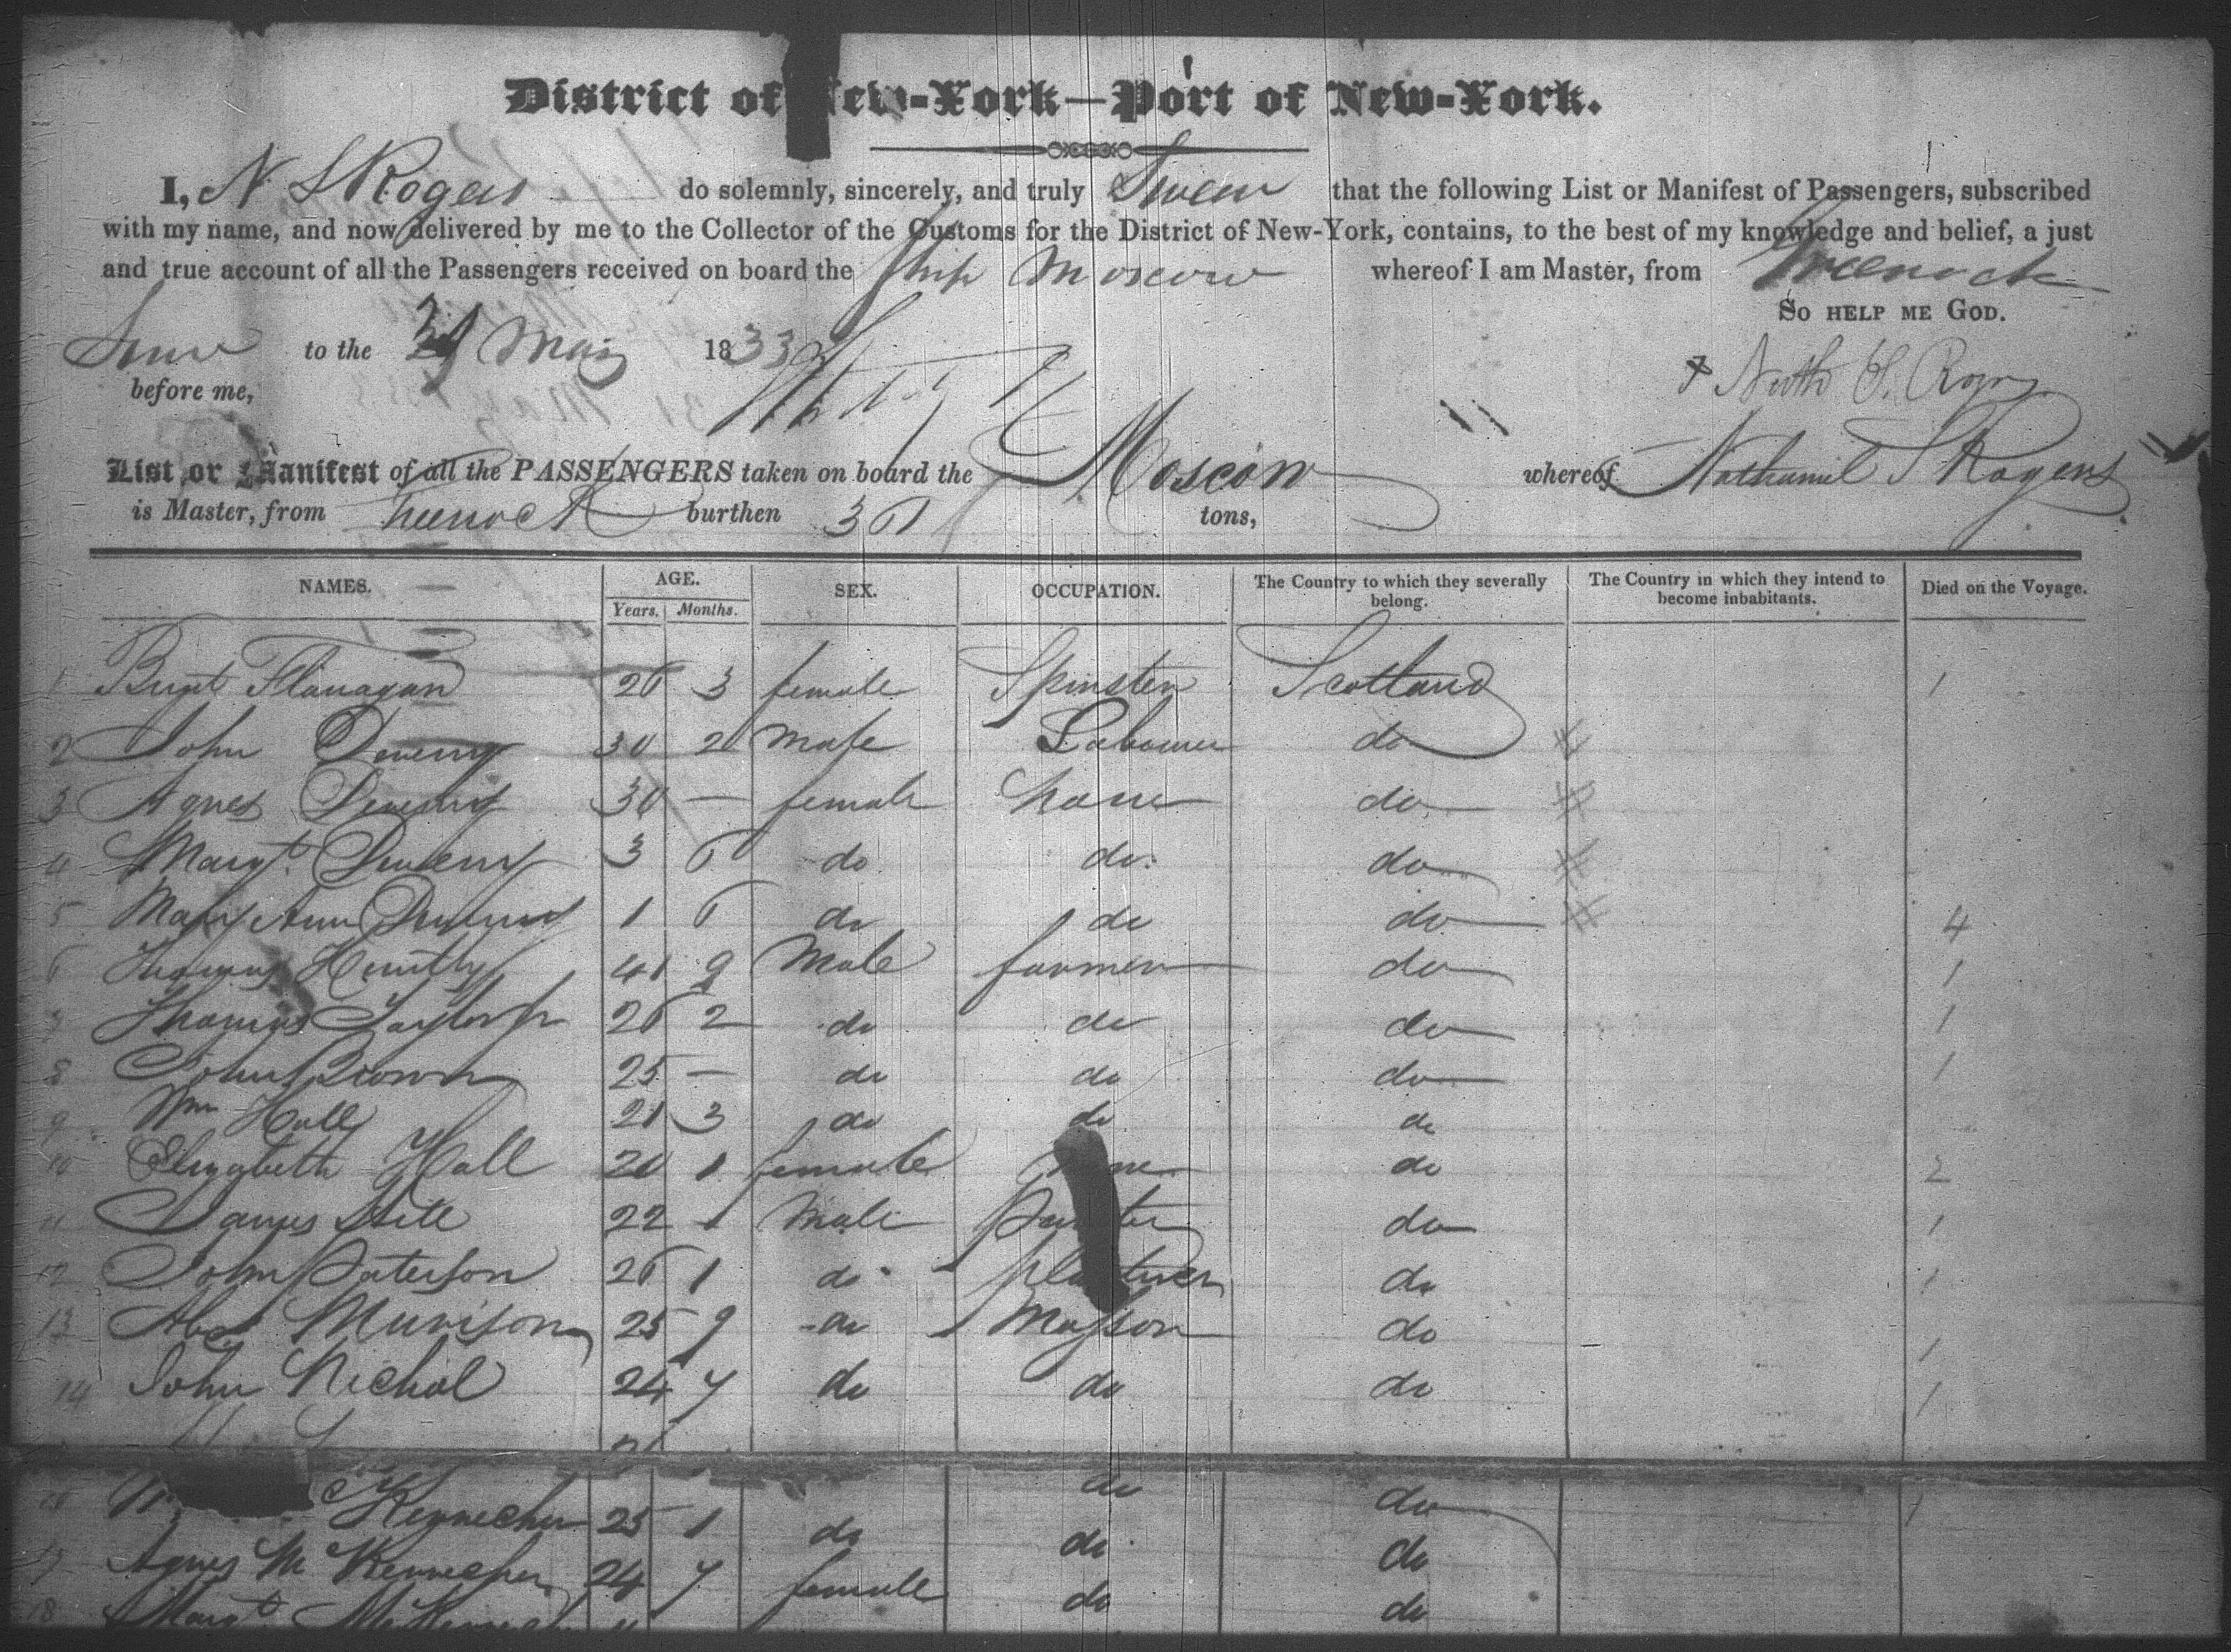 District of New-York—Port of New-York.
I, N S Rogers do solemnly, sincerely, and truly Swear that the following List or Manifest of Passengers, subscribed
with my name, and now delivered by me to the Collector of the Customs for the District of New-York, contains, to the best of my knowledge and belief, a just
and true account of all the Passengers received on board the Ship Moscow whereof I am Master, from Greenock
So HELP ME GOD.
to the 31 May 1833
before me,
List or Manifest of all the PASSENGERS taken on board the Moscow whereof Nathaniel S Rogers
is Master, from Greenock burthen tons,
NAMES. AGE. SEX. OCCUPATION. The Country to which they severally belong. The Country in which they intend to become inhabitants. Died on the Voyage.
Years. Months.
1 Flanagan 26 3 female Spinster Scotland 1
2 John 30 2 male Labourer do
3 Agnes 30 — female none do
4 Margt. 3 6 do do. do
5 Mary Ann 1 6 do do do 4
6 Thomas Huntly 41 9 Male farmer do 1
7 Thomas Taylor 26 2 do do do 1
8 John Brown 25 — do do do 1
9 Wm Hall 21 3 do do do
10 Elizabeth Hall 20 1 female do 2
11 James 22 1 Male do 1
12 John Paterson 26 1 do do 1
13 Alex Murison 25 9 do Masson do 1
14 John Nichol 24 7 do do do 1
do do 1
25 1 do do do
17 Agnes 24 7 female do do
18 Margt.